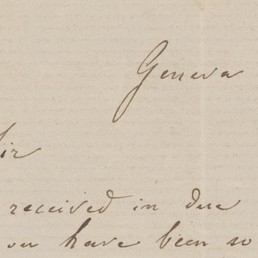 Geneva
Sir
received in due
you have been so